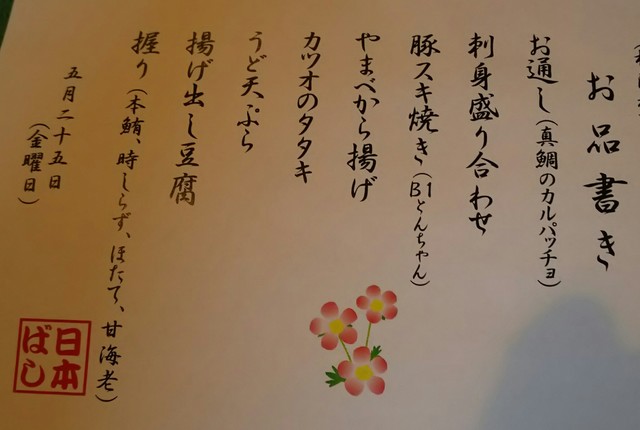 お品書き
お通し(真鯛のカルパッチョ)
刺身盛り合わせ
豚スキ焼き(B1とんちゃん)
やまべから揚げ
カツオのタタキ
うど天ぷら
揚げ出し豆腐
握り(本鮪、時しらず、ほたて、甘海老)
五月二十五日
(金曜日)
日本ばし